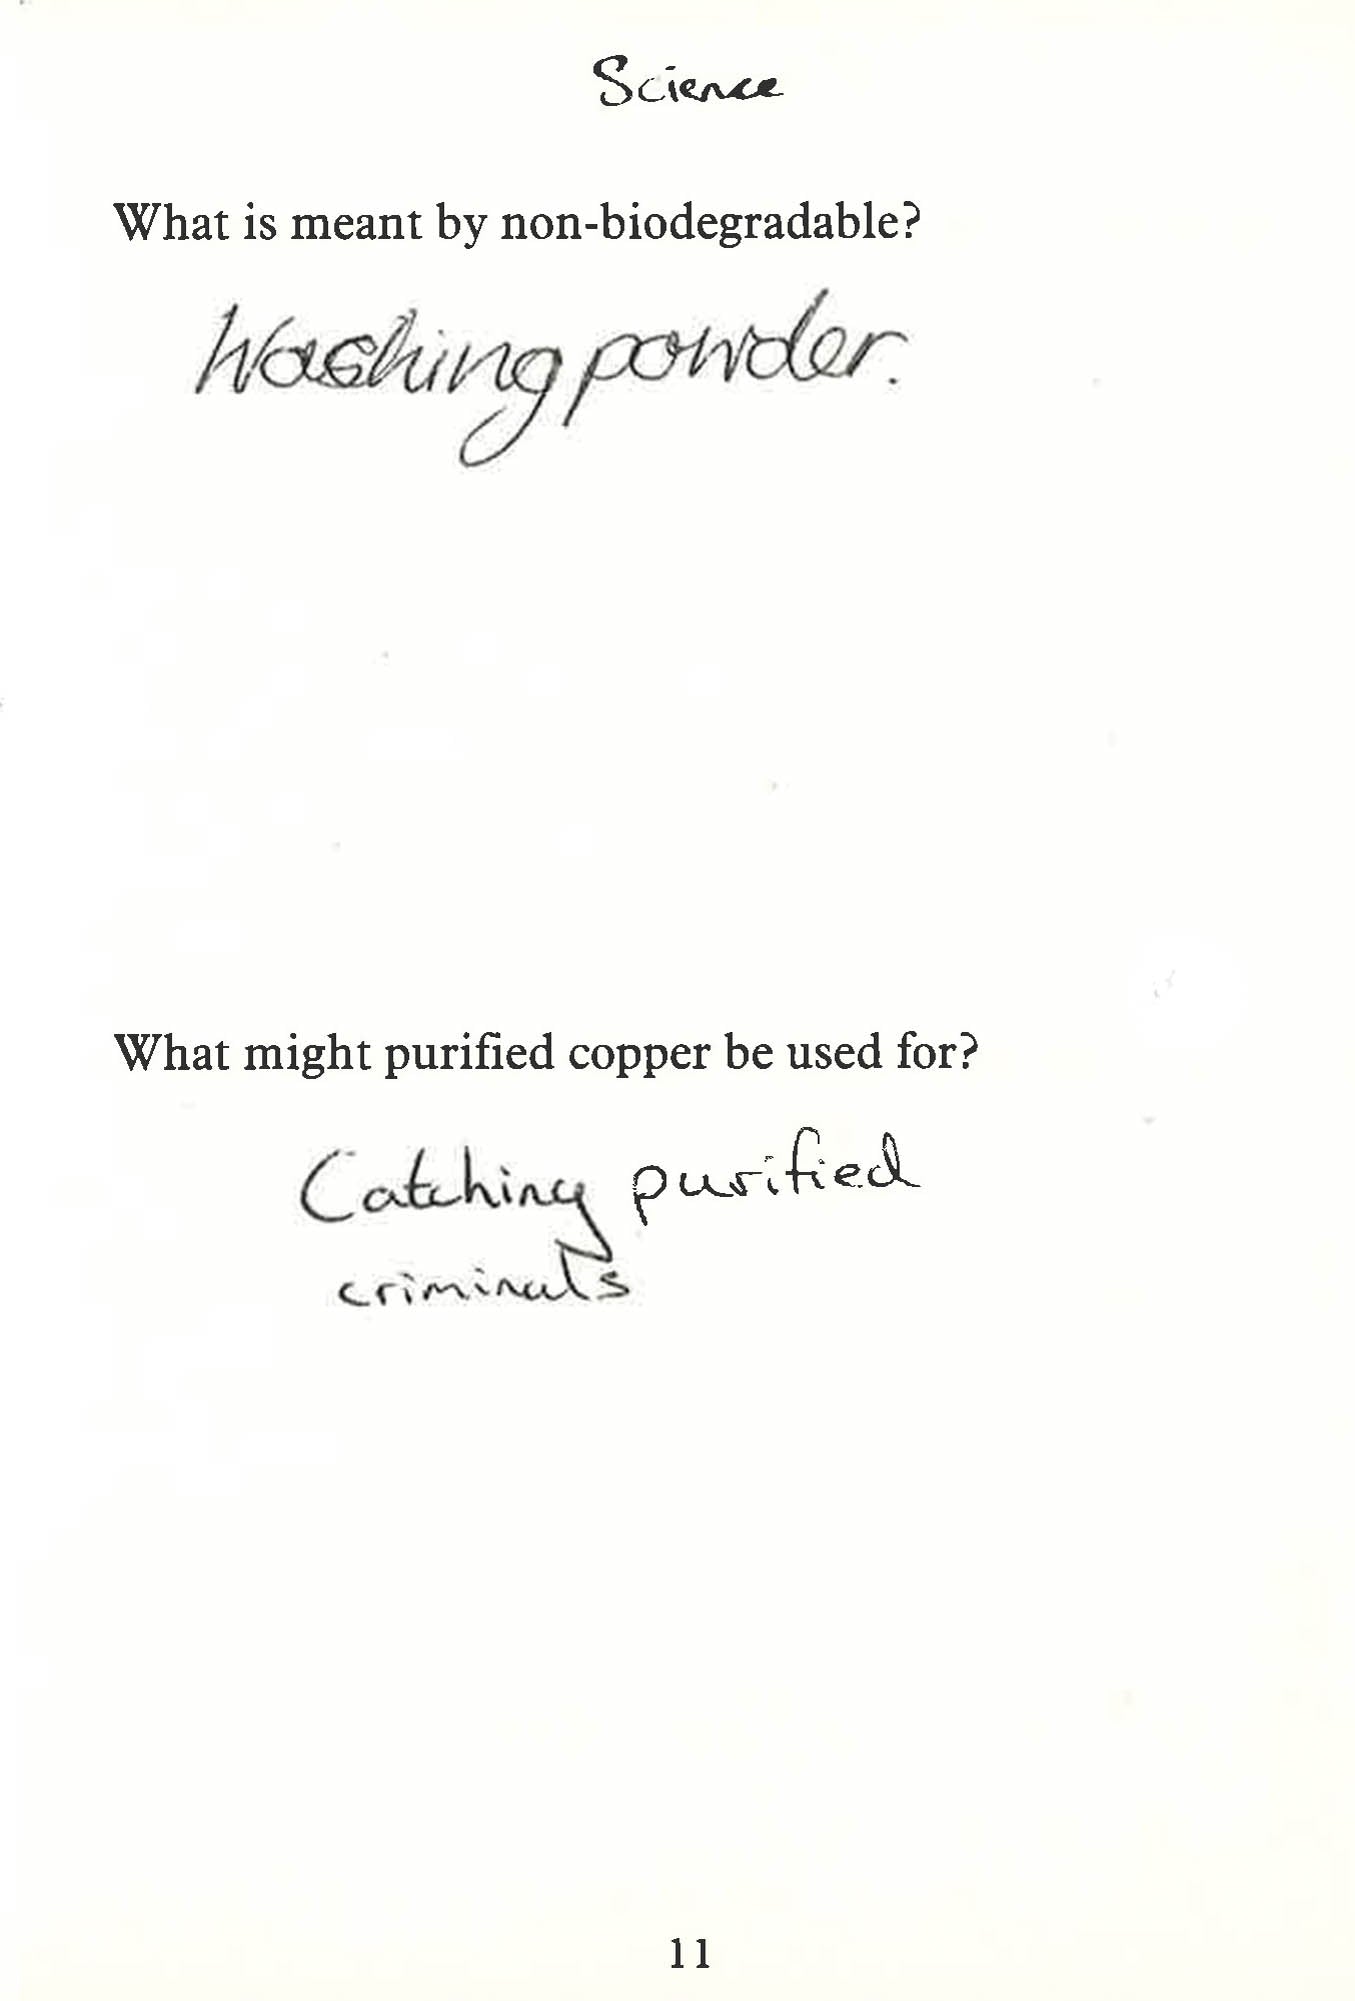 Science
What is meant by non-biodegradable?
Washing powder.
What might purified copper be used for?
Catching purified
criminals
11